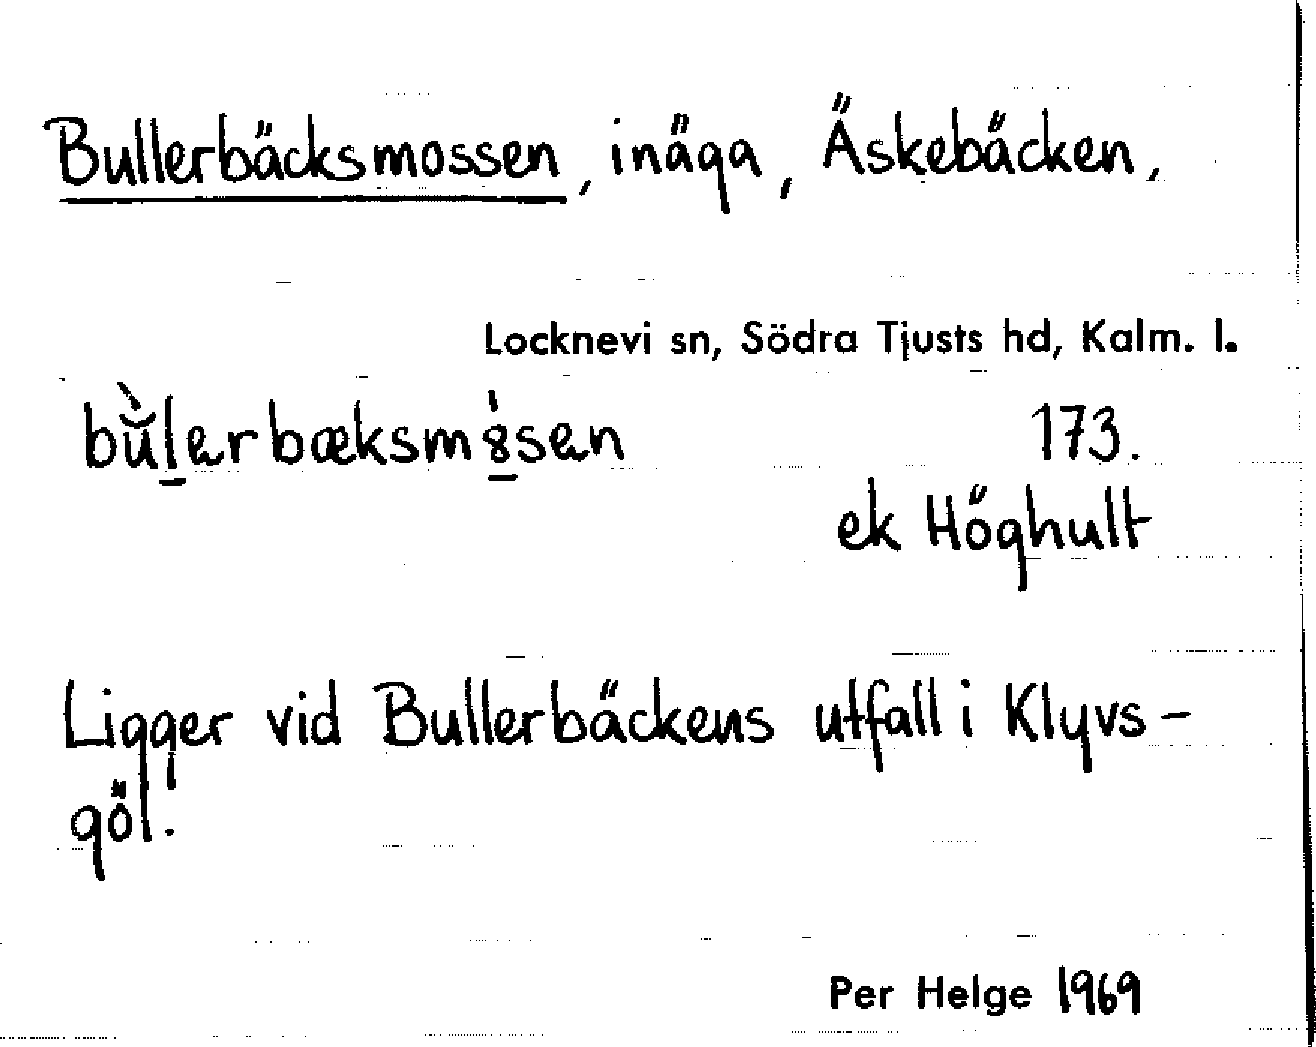 Bullerbäcksmossen, inäga, Äskebäcken,
Locknevi sn, Södra Tjusts hd, Kalm. l.
173.
ek Höghult
Ligger vid Bullerbäckens utfall i Klyvs-
göl.
Per Helge 1969